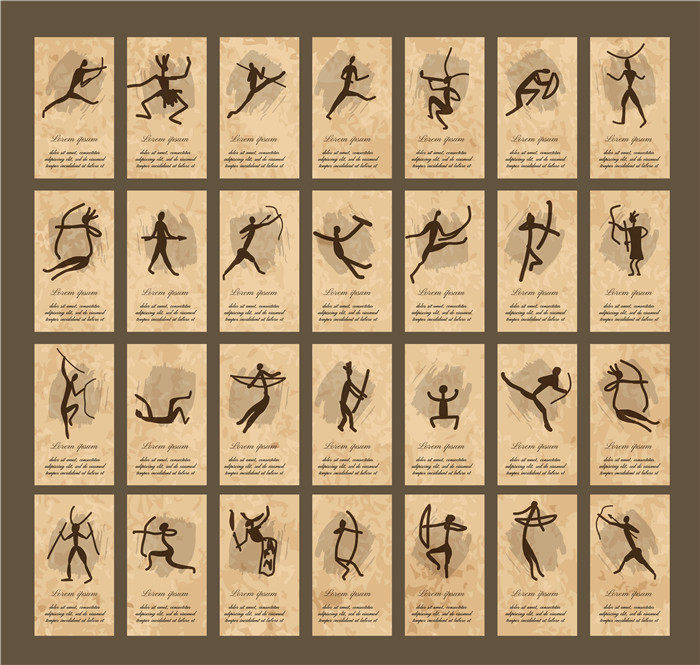 Lorem ipsum
dolor sit amet, consectetur
adipiscing elit, sed do eiusmod
tempor incididunt ut labore et
Lorem ipsum
dolor sit amet, consectetur
adipiscing elit, sed do eiusmod
tempor incididunt ut labore et
Lorem ipsum
dolor sit amet, consectetur
adipiscing elit, sed do eiusmod
tempor incididunt ut labore et
Lorem ipsum
dolor sit amet, consectetur
adipiscing elit, sed do eiusmod
tempor incididunt ut labore et
Lorem ipsum
dolor sit amet, consectetur
adipiscing elit, sed do eiusmod
tempor incididunt ut labore et
Lorem ipsum
dolor sit amet, consectetur
adipiscing elit, sed do eiusmod
tempor incididunt ut labore et
Lorem ipsum
dolor sit amet, consectetur
adipiscing elit, sed do eiusmod
tempor incididunt ut labore et
Lorem ipsum
dolor sit amet, consectetur
adipiscing elit, sed do eiusmod
tempor incididunt ut labore et
Lorem ipsum
dolor sit amet, consectetur
adipiscing elit, sed do eiusmod
tempor incididunt ut labore et
Lorem ipsum
dolor sit amet, consectetur
adipiscing elit, sed do eiusmod
tempor incididunt ut labore et
Lorem ipsum
dolor sit amet, consectetur
adipiscing elit, sed do eiusmod
tempor incididunt ut labore et
Lorem ipsum
dolor sit amet, consectetur
adipiscing elit, sed do eiusmod
tempor incididunt ut labore et
Lorem ipsum
dolor sit amet, consectetur
adipiscing elit, sed do eiusmod
tempor incididunt ut labore et
Lorem ipsum
dolor sit amet, consectetur
adipiscing elit, sed do eiusmod
tempor incididunt ut labore et
Lorem ipsum
dolor sit amet, consectetur
adipiscing elit, sed do eiusmod
tempor incididunt ut labore et
Lorem ipsum
dolor sit amet, consectetur
adipiscing elit, sed do eiusmod
tempor incididunt ut labore et
Lorem ipsum
dolor sit amet, consectetur
adipiscing elit, sed do eiusmod
tempor incididunt ut labore et
Lorem ipsum
dolor sit amet, consectetur
adipiscing elit, sed do eiusmod
tempor incididunt ut labore et
Lorem ipsum
dolor sit amet, consectetur
adipiscing elit, sed do eiusmod
tempor incididunt ut labore et
Lorem ipsum
dolor sit amet, consectetur
adipiscing elit, sed do eiusmod
tempor incididunt ut labore et
Lorem ipsum
dolor sit amet, consectetur
adipiscing elit, sed do eiusmod
tempor incididunt ut labore et
Lorem ipsum
dolor sit amet, consectetur
adipiscing elit, sed do eiusmod
tempor incididunt ut labore et
Lorem ipsum
dolor sit amet, consectetur
adipiscing elit, sed do eiusmod
tempor incididunt ut labore et
Lorem ipsum
dolor sit amet, consectetur
adipiscing elit, sed do eiusmod
tempor incididunt ut labore et
Lorem ipsum
dolor sit amet, consectetur
adipiscing elit, sed do eiusmod
tempor incididunt ut labore et
Lorem ipsum
dolor sit amet, consectetur
adipiscing elit, sed do eiusmod
tempor incididunt ut labore et
Lorem ipsum
dolor sit amet, consectetur
adipiscing elit, sed do eiusmod
tempor incididunt ut labore et
Lorem ipsum
dolor sit amet, consectetur
adipiscing elit, sed do eiusmod
tempor incididunt ut labore et